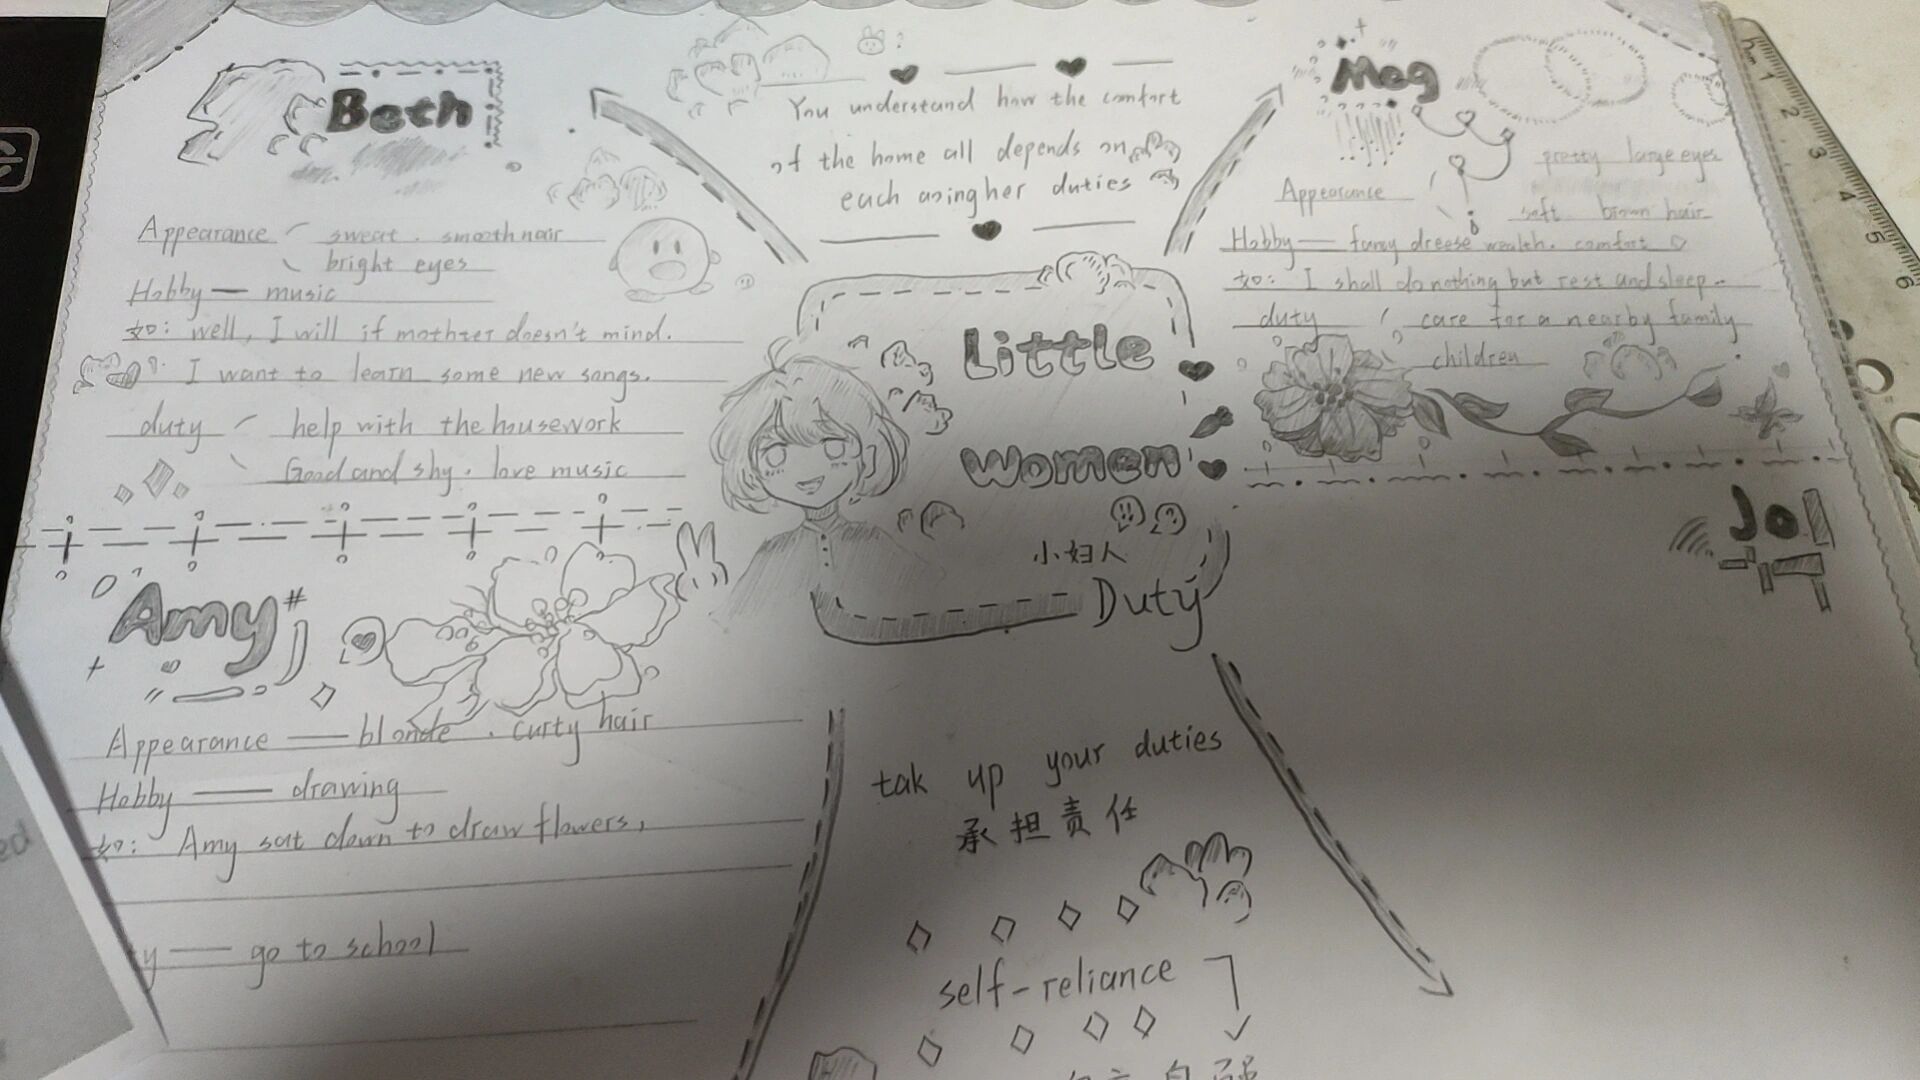 Beth
Appearance
sweat . smooth hair
bright eyes
Hobby — music
如: well, I will if mothter doesn't mind.
I want to learn some new songs.
duty
help with the housework
Good and shy . love music
You understand how the comfort
of the home all depends on
each usingher duties
Meg
Appearance
pretty large eyes
soft brown hair
Hobby — fancy dreese wealth. comfort
如: I shall do nothing but rest and sleep..
duty
care for a nearby family
children
Little
Women
小妇人
Duty
Jo
Amy
Appearance — blonde . curty hair
Hobby — drawing
如: Amy sat down to draw flowers,
y — go to school
tak up your duties
承担责任
self-reliance